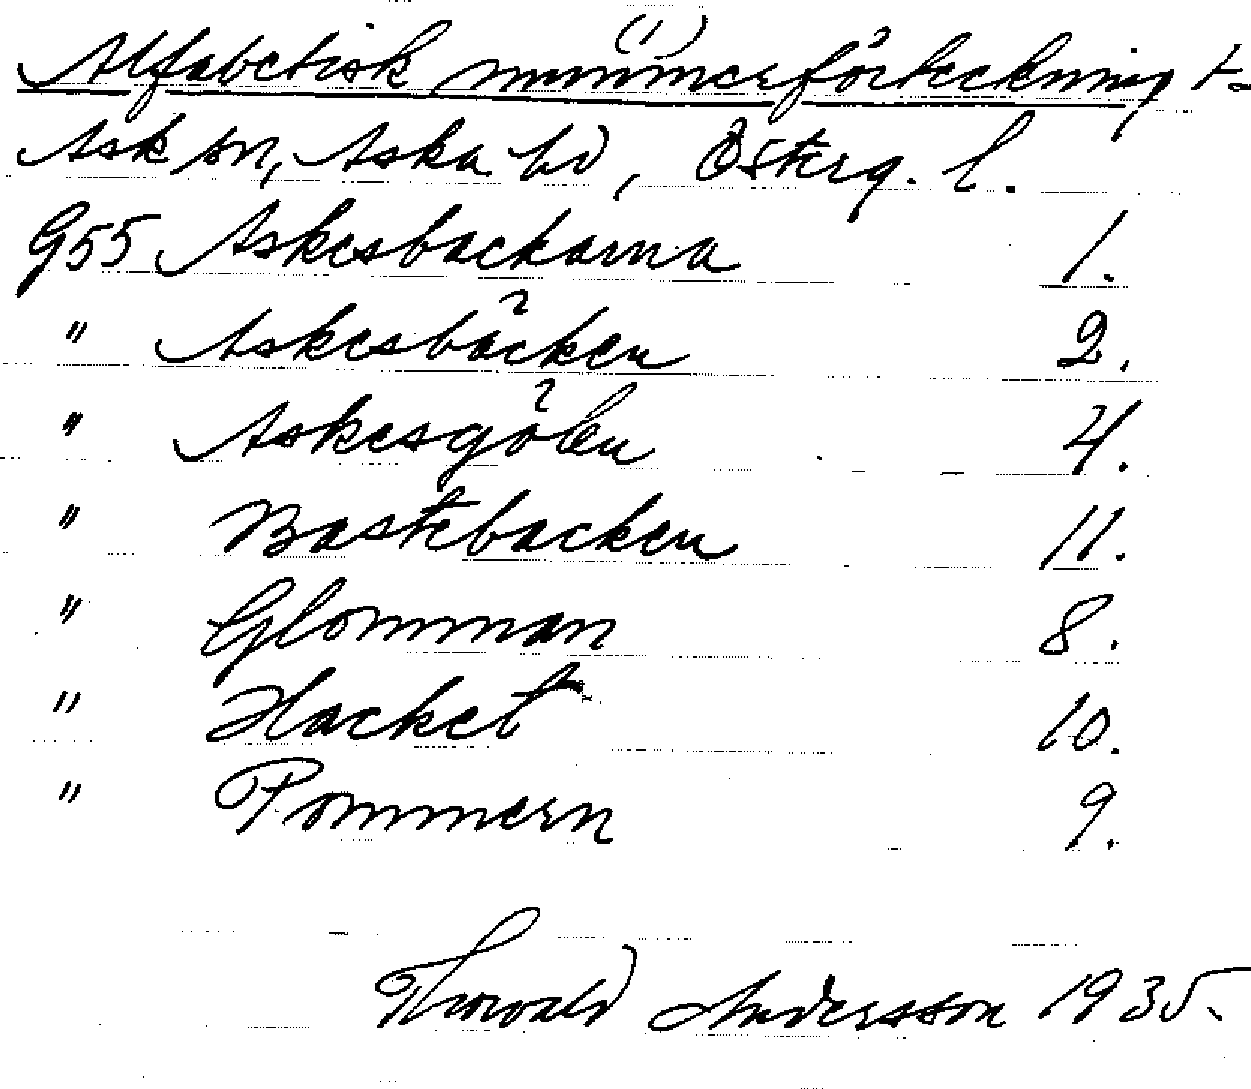 (1)
Alfabetisk nummerförteckning t.
Ask sn, Aska hd, Österg. l.
G55 Askesbackarna 1.
" Askesbäcken 2.
" Askesgölen 4.
" Bastebacken 11.
" Glomman 8.
" Hacket 10.
" Pommern 9.
Thorvald Andersson 1935.